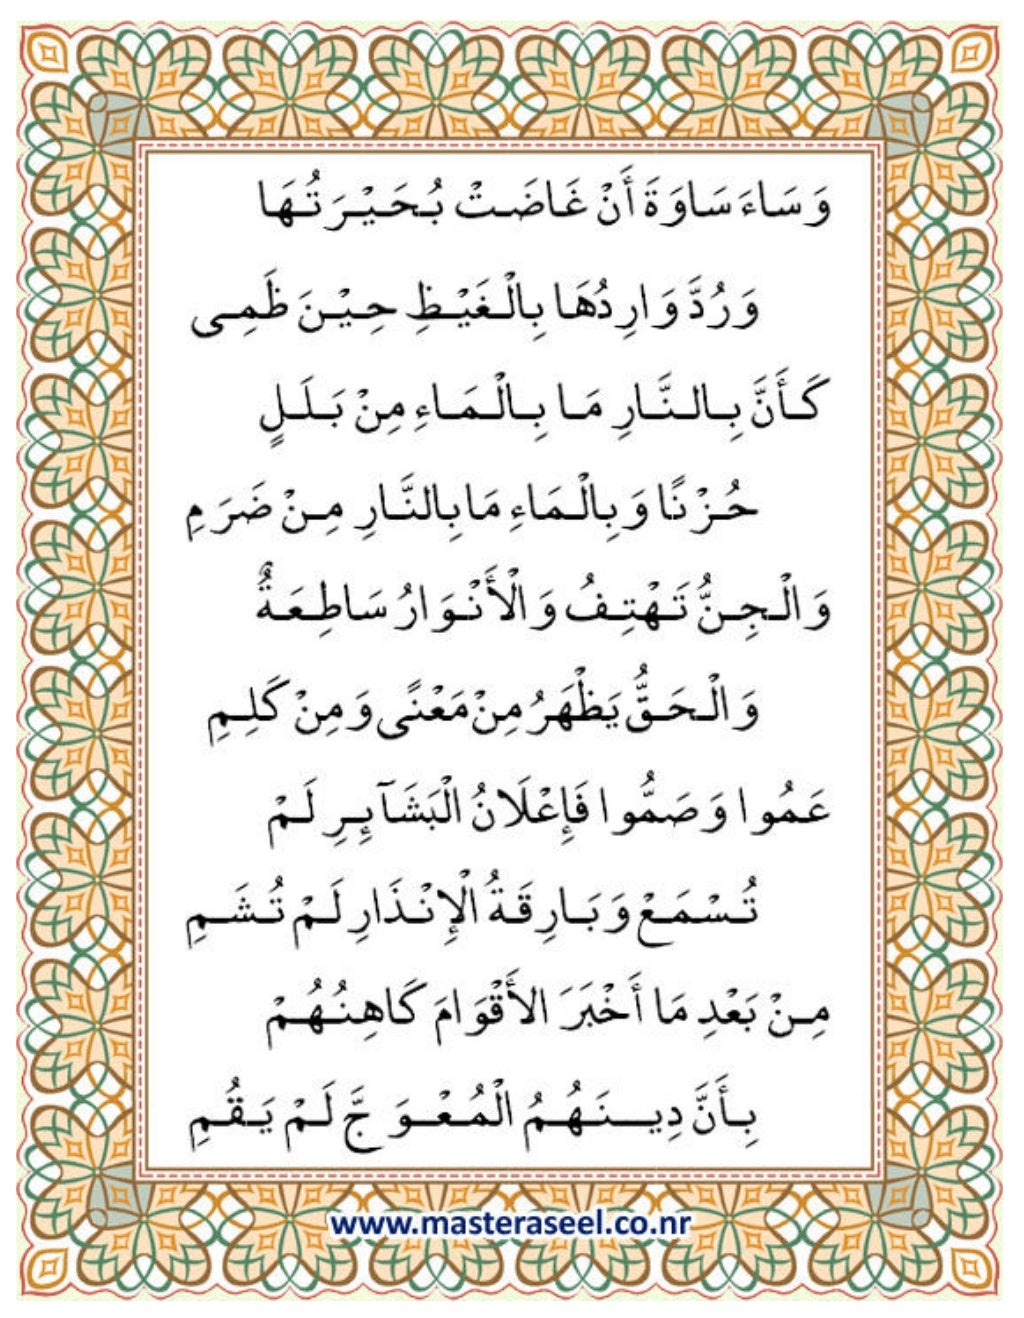 وَسَاءَ سَاوَةَ أَنْ غَاضَتْ بُحَيْرَتُهَا
وَرُدَّ وَارِدُهَا بِالْغَيْظِ حِيْنَ ظَمِى
كَأَنَّ بِالنَّارِ مَا بِالْمَاءِ مِنْ بَلَلٍ
حُزْنًا وَبِالْمَاءِ مَا بِالنَّارِ مِنْ ضَرَمِ
وَالْجِنُّ تَهْتِفُ وَالْأَنْوَارُ سَاطِعَةٌ
وَالْحَقُّ يَظْهَرُ مِنْ مَعْنًى وَمِنْ كَلِمِ
عَمُوا وَصَمُّوا فَإِعْلَانُ الْبَشَآئِرِ لَمْ
تُسْمَعْ وَبَارِقَةُ الْإِنْذَارِ لَمْ تُشَمِ
مِنْ بَعْدِ مَا أَخْبَرَ الأَقْوَامَ كَاهِنُهُمْ
بِأَنَّ دِينَهُمُ الْمُعْوَجَّ لَمْ يَقُمِ
www.masteraseel.co.nr